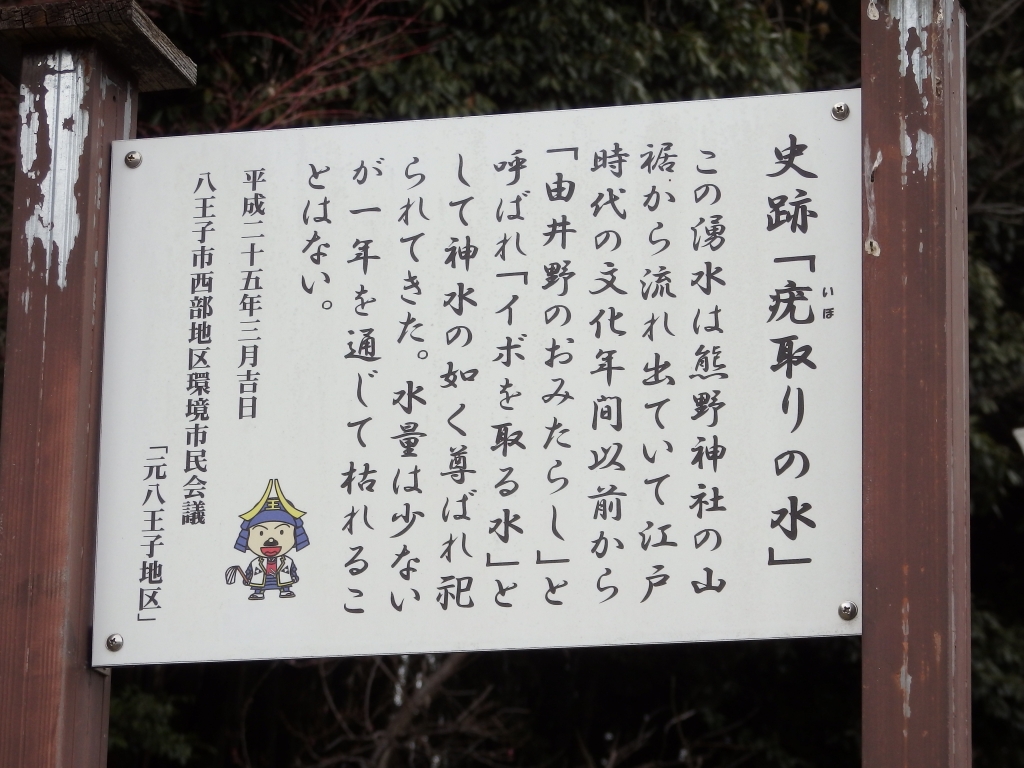 史跡「疣取りの水」
いぼ
この湧水は熊野神社の山
裾から流れ出ていて江戸
時代の文化年間以前から
「由井野のおみたらし」と
呼ばれ「イボを取る水」と
して神水の如く尊ばれ祀
られてきた。水量は少ない
が一年を通じて枯れるこ
とはない。
平成二十五年三月吉日
八王子市西部地区環境市民会議
「元八王子地区」
王